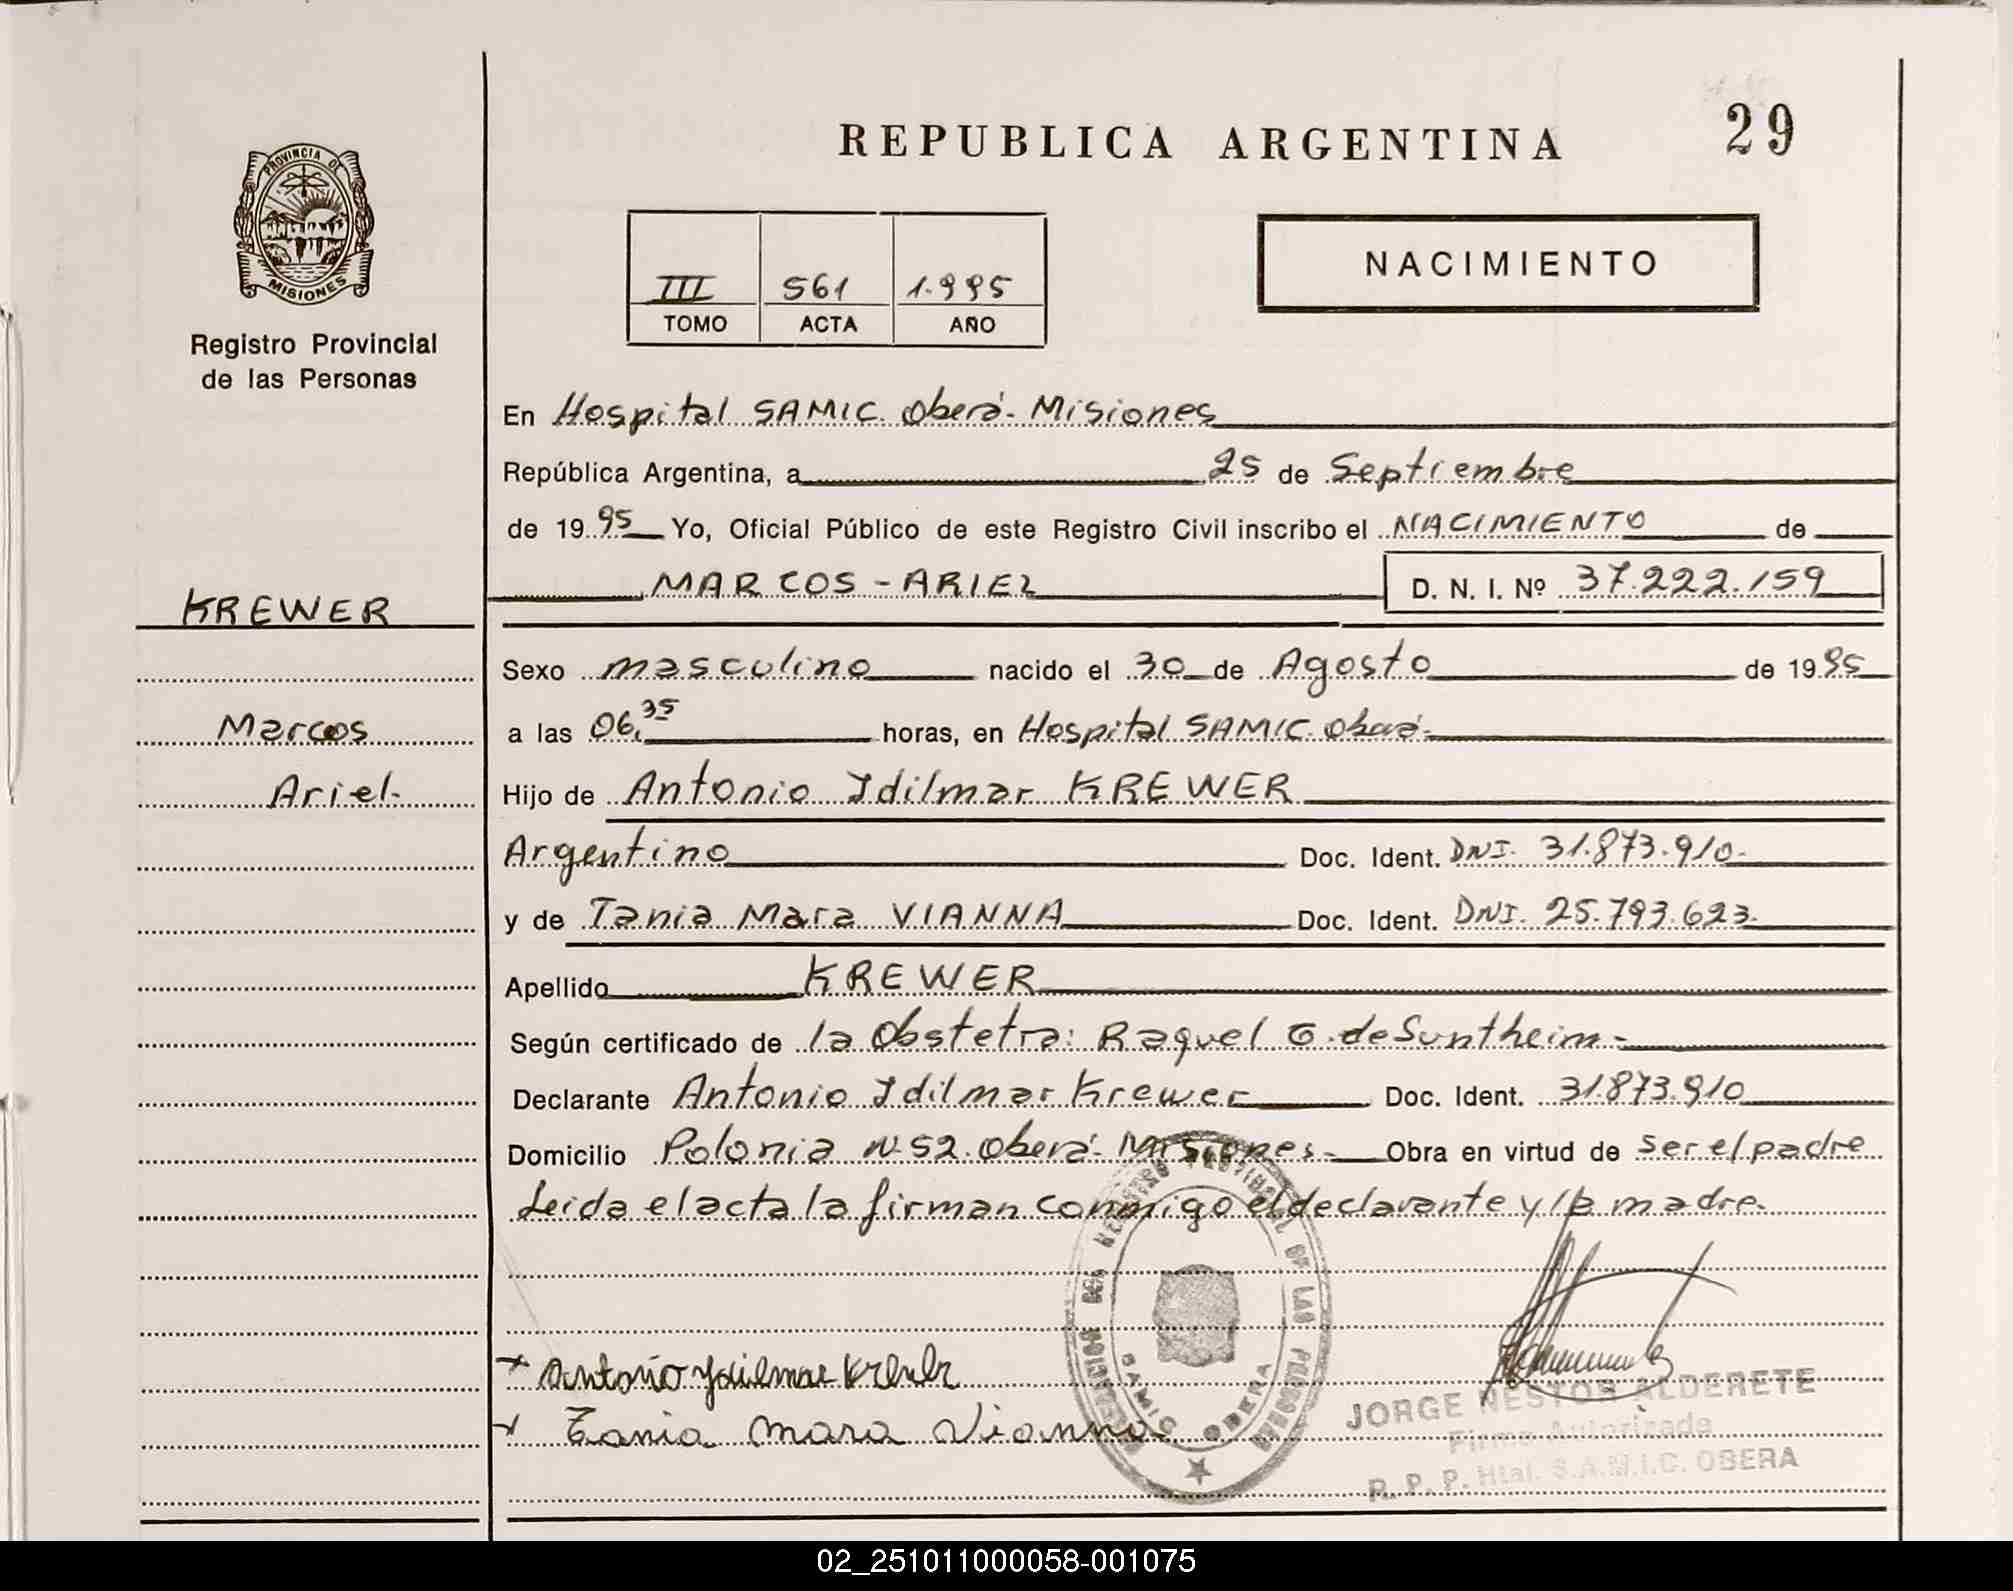 REPUBLICA ARGENTINA
29
PROVINCIA DE
MISIONES
Registro Provincial
de las Personas
III 561 1.995
TOMO ACTA AÑO
NACIMIENTO
En Hospital SAMIC. Oberá- Misiones
República Argentina, a 25 de Septiembre
de 19 95 Yo, Oficial Público de este Registro Civil inscribo el NACIMIENTO de
MARCOS - ARIEL D. N. I. Nº 37.222.159
KREWER
Marcos
Ariel-
Sexo masculino nacido el 30 de Agosto de 19 95
a las 06,35 horas, en Hospital SAMIC. Oberá-
Hijo de Antonio Idilmar KREWER
Argentino Doc. Ident. DNI. 31.873.910-
y de Tania Mara VIANNA Doc. Ident. DNI. 25.793.623-
Apellido KREWER
Según certificado de la Obstetra: Raquel G. de Suntheim-
Declarante Antonio Idilmar Krewer Doc. Ident. 31.873.910
Domicilio Polonia Nº 52. Oberá- Misiones- Obra en virtud de ser el padre
Leida el acta la firman conmigo el declarante y la madre-
Antonio Ydilmar Krewer
Tania Mara Vianna
DEL REGISTRO PROVINCIAL DE LAS PERSONAS
SAMIC OBERA
JORGE NESTOR ALDERETE
Firma Autorizada
R. P. P. Htal. S.A.M.I.C. OBERA
02_251011000058-001075